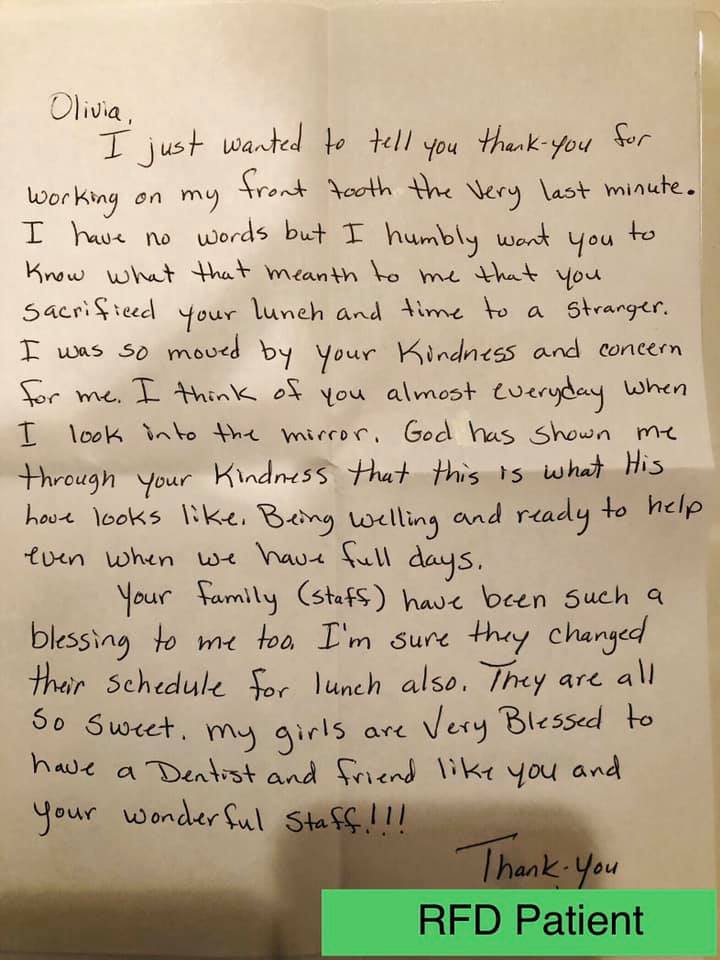 Olivia,
I just wanted to tell you thank-you for
working on my front tooth the very last minute.
I have no words but I humbly want you to
know what that meanth to me that you
sacrificed your lunch and time to a stranger.
I was so moved by your kindness and concern
for me. I think of you almost everyday when
I look into the mirror. God has shown me
through your kindness that this is what His
love looks like. Being welling and ready to help
even when we have full days.
Your family (staff) have been such a
blessing to me too. I'm sure they changed
their schedule for lunch also. They are all
so sweet. my girls are Very Blessed to
have a Dentist and friend like you and
your wonderful staff!!!
Thank-you
RFD Patient